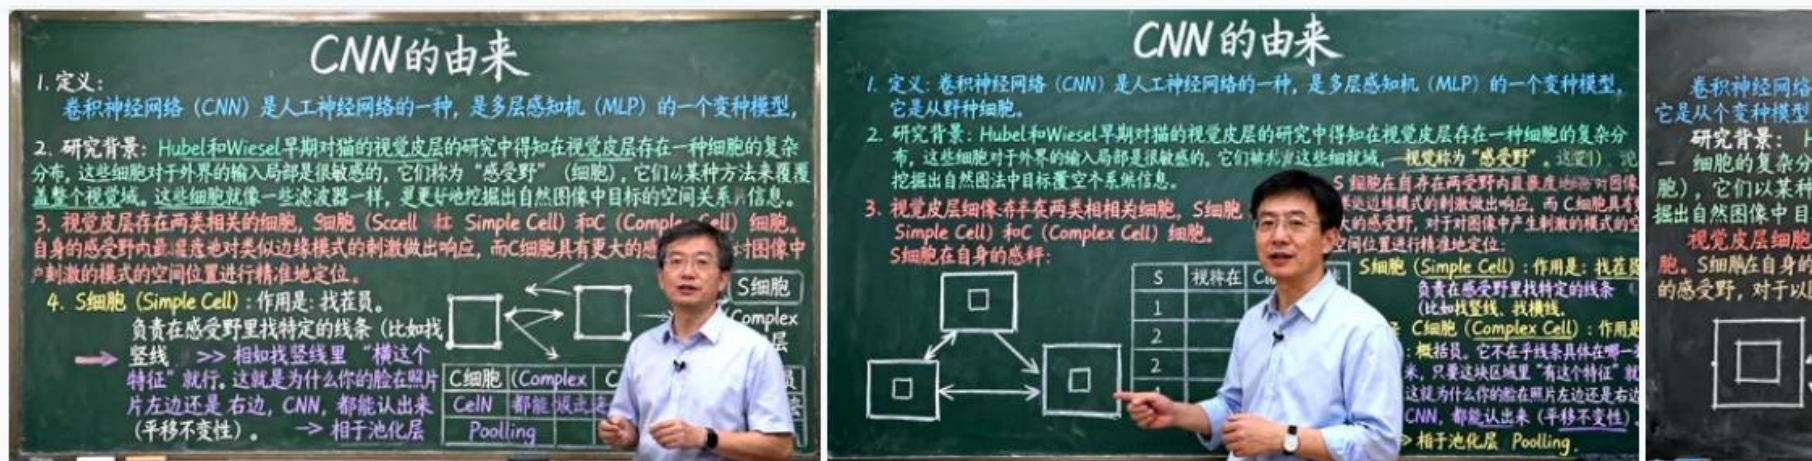 CNN的由来
1. 定义:
卷积神经网络（CNN）是人工神经网络的一种，是多层感知机（MLP）的一个变种模型，
2. 研究背景：Hubel和Wiesel早期对猫的视觉皮层的研究中得知在视觉皮层存在一种细胞的复杂
分布，这些细胞对于外界的输入局部是很敏感的，它们称为“感受野”（细胞），它们以某种方法来覆覆
盖整个视觉域。这些细胞就像一些滤波器一样，更好地挖掘出自然图像中目标的空间关系信息。
3. 视觉皮层存在两类相关的细胞，S细胞（Sccell Simple Cell）和C（Complex Cell）细胞。
自身的感受野内最 对类似边缘模式的刺激做出响应，而C细胞具有更大的感 对图像中
刺激的模式的空间位置进行精准地定位。
4. S细胞（Simple Cell）：作用是：找茬员。
负责在感受野里找特定的线条（比如找
竖线 >> 相如找竖线里 “横这个
特征”就行。这就是为什么你的脸在照片
片左边还是右边，CNN，都能认出来
（平移不变性）。 → 相于池化层
S细胞
Complex
层
C细胞 (Complex C
CelN 都能
Poolling
CNN的由来
1. 定义：卷积神经网络（CNN）是人工神经网络的一种，是多层感知机（MLP）的一个变种模型，
它是从野种细胞。
2. 研究背景：Hubel和Wiesel早期对猫的视觉皮层的研究中得知在视觉皮层存在一种细胞的复杂分
布，这些细胞对于外界的输入局部是很敏感的。它们被 这些细就域，一视觉称为“感受野”。
挖掘出自然图法中目标覆空个系统信息。
3. 视觉皮层细像 在两类相相关细胞，S细胞
Simple Cell）和C（Complex Cell）细胞。
S细胞在自身的感 ：
S 细胞在自存在两受野内 对图像
边缘模式的刺激做出响应，而 C细胞具有
大的感受野，对于对图像中产生刺激的模式的空
空间位置进行精准地定位：
S 视称在 C
1
2
2
S细胞（Simple Cell）：作用是：找茬员
负责在感受野里找特定的线条
（比如找竖线、找横线.
C细胞（Complex Cell）：作用是
：概括员。它不在乎线条具体在哪一
米，只要这块区域里“有这个特征”就
这就为什么你的脸在照片左边还是右边
CNN，都能认出来（平移不变性）
> 相于池化层 Poolling
卷积神经网络
它是从个变种模型
研究背景：H
一 细胞的复杂分
胞），它们以某种
掘出自然图像中目
视觉皮层细胞
胞。S细胞在自身的
的感受野，对于以